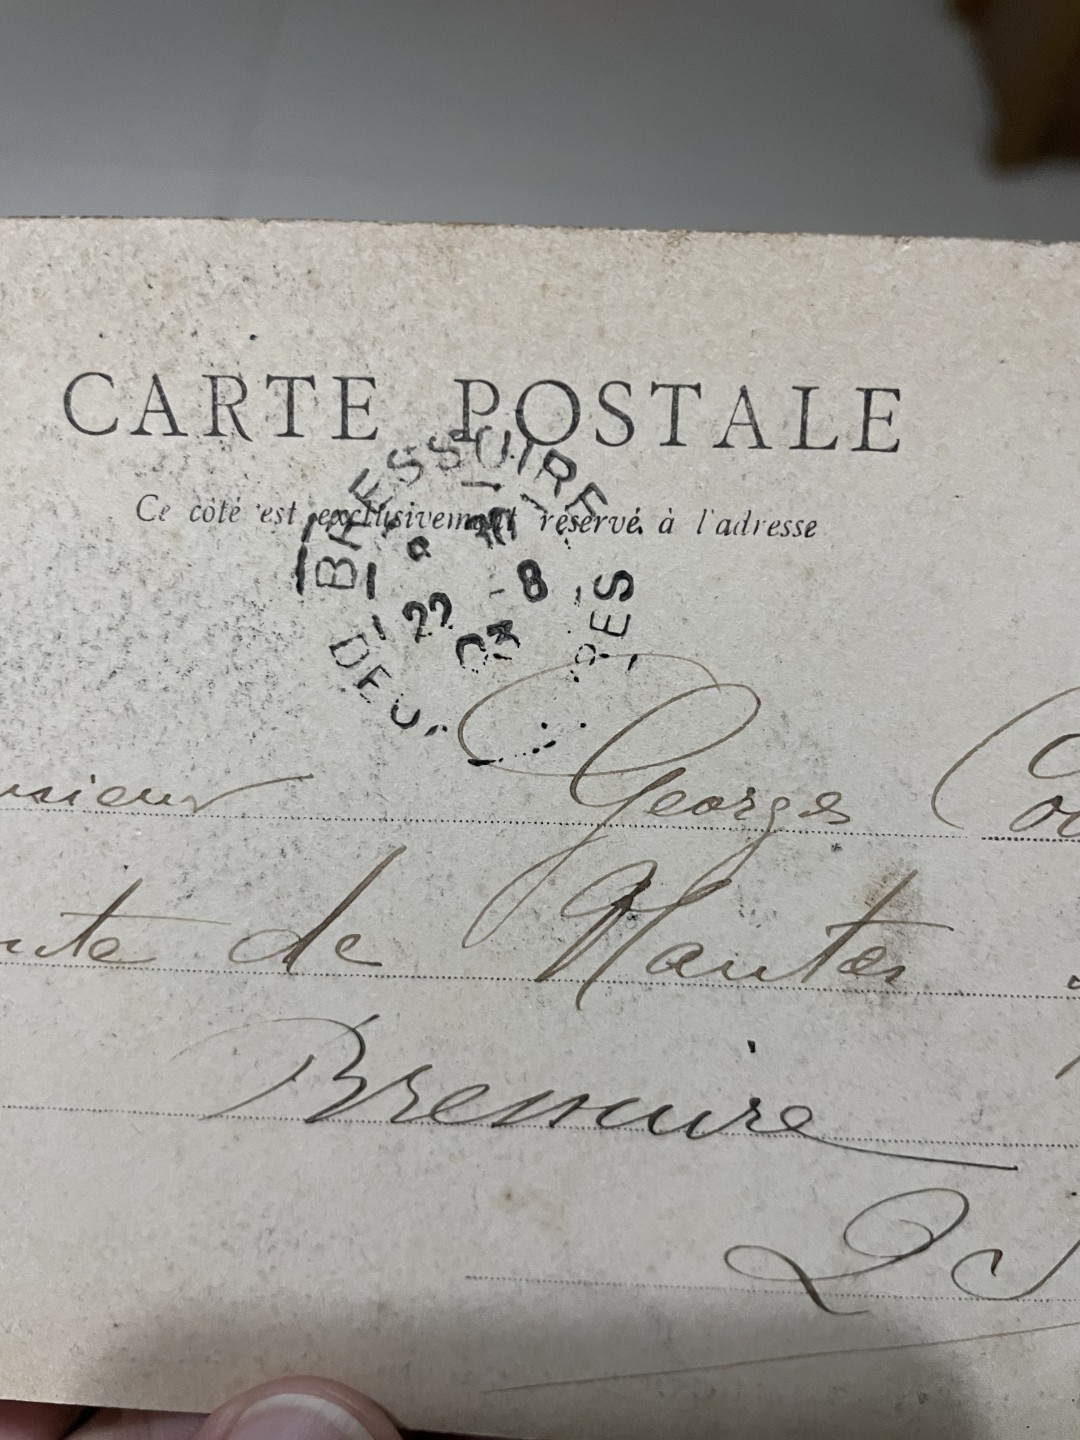 CARTE POSTALE
Ce côté est exclusivement réservé à l'adresse
BRESSUIRE
22
-8
DEUX
RES
Georges
de Nantes
Bressuire